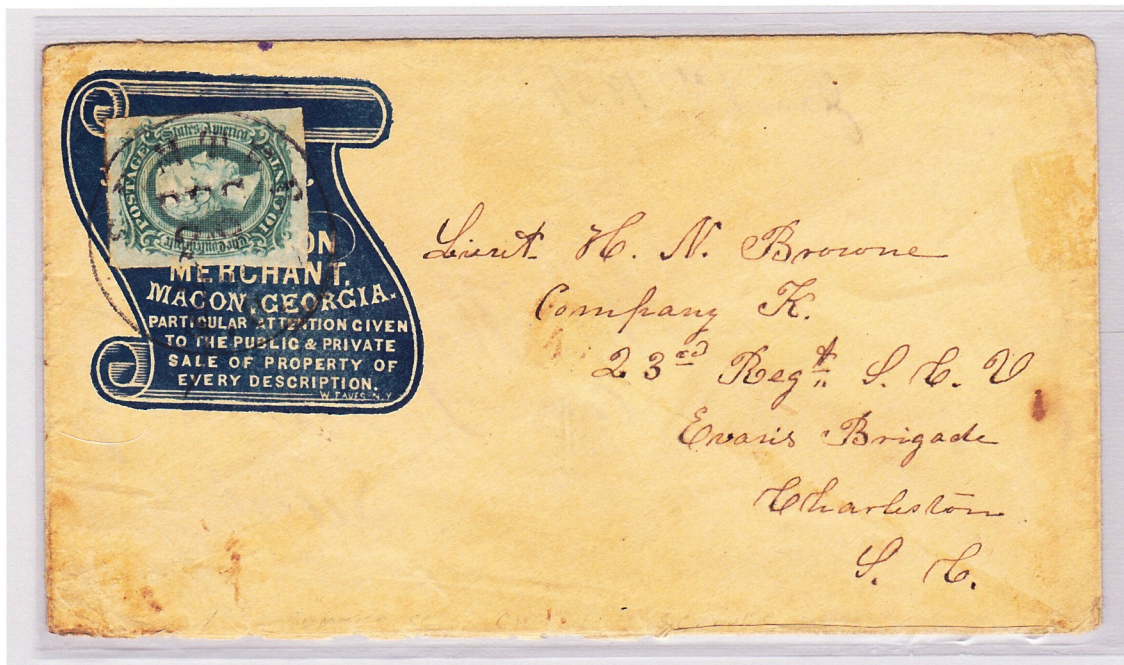 The Confederate States America
POSTAGE
TEN CENTS
ON
MERCHANT.
MACON, GEORGIA.
PARTICULAR ATTENTION GIVEN
TO THE PUBLIC & PRIVATE
SALE OF PROPERTY OF
EVERY DESCRIPTION.
W. EAVES. N.Y
Lieut H. N. Browne
Company K.
23rd Regt. S. C. V
Evans Brigade
Charleston
S. C.